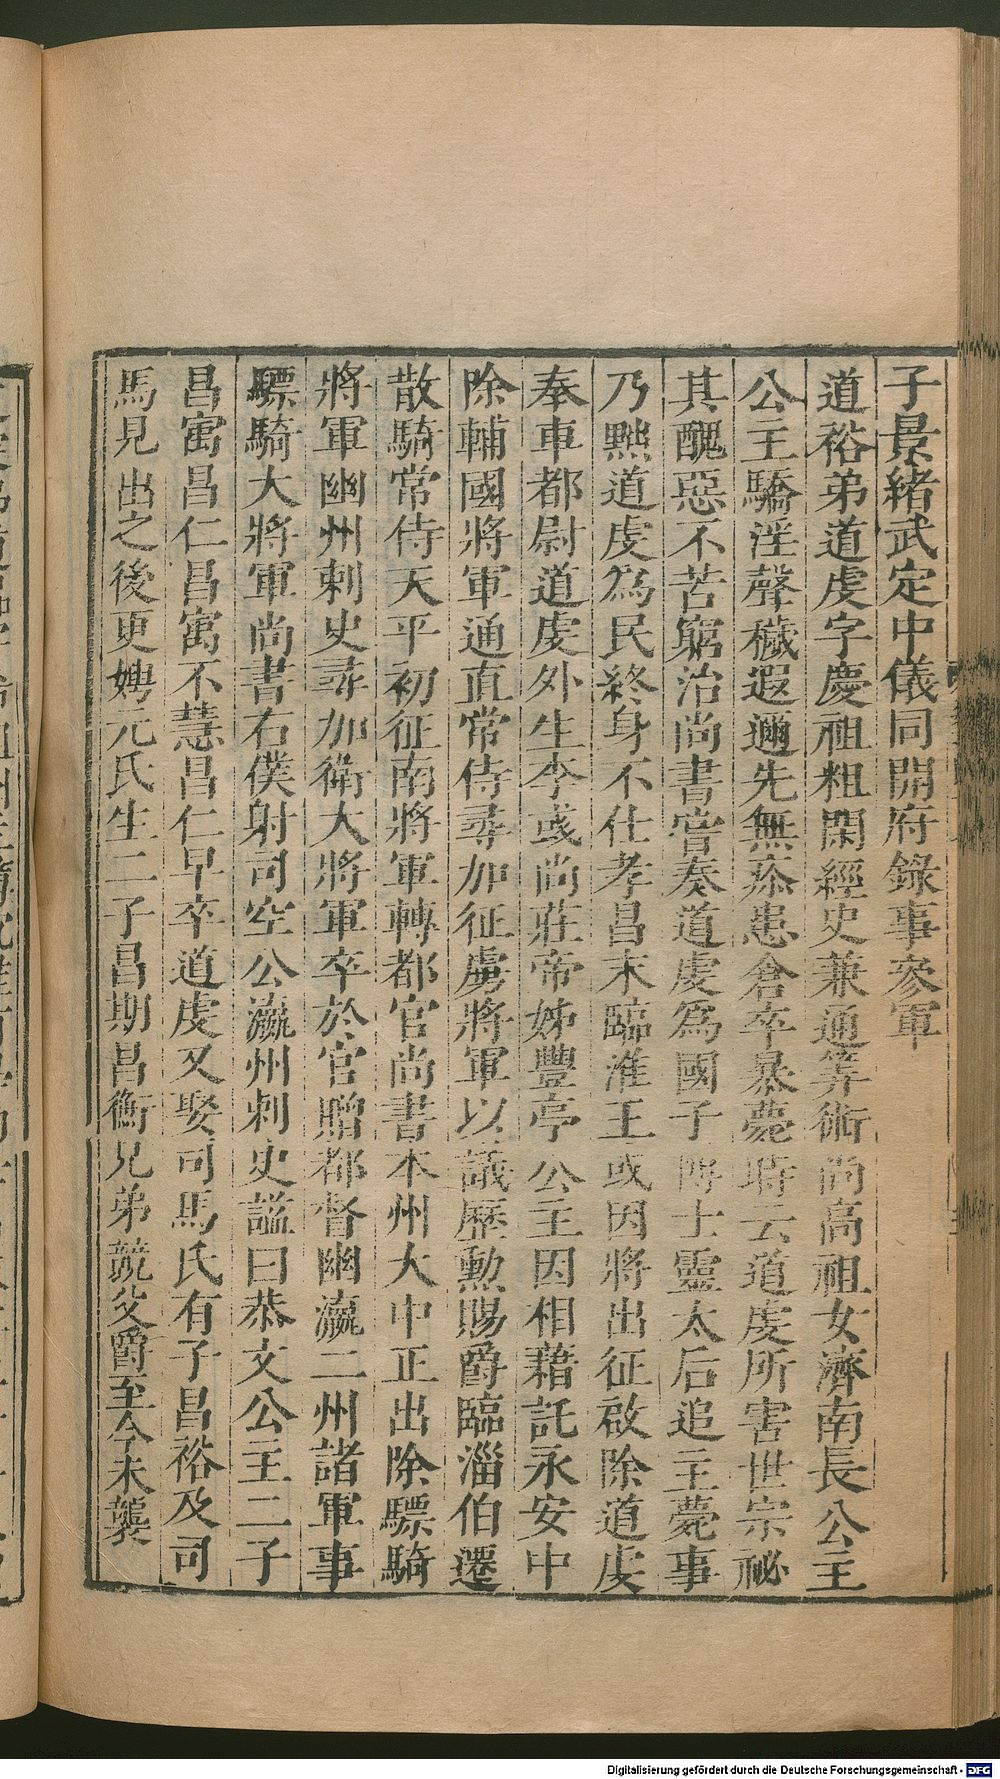 子景緒武定中儀同開府錄事參軍
道裕弟道虔字慶祖粗閑經史兼通筭術尚高祖女濟南長公主
公主驕淫聲穢遐邇先無疹患倉卒暴薨時云道虔所害世宗祕
其醜惡不苦窮治尚書嘗奏道虔為國子博士靈太后追主薨事
乃黜道虔為民終身不仕孝昌末臨淮王彧因將出征啟除道虔
奉車都尉道虔外生李彧尚莊帝姊豐亭公主因相藉託永安中
除輔國將軍通直常侍尋加征虜將軍以議歷勳賜爵臨淄伯遷
散騎常侍天平初征南將軍轉都官尚書本州大中正出除驃騎
將軍幽州刺史尋加衛大將軍卒於官贈都督幽瀛二州諸軍事
驃騎大將軍尚書右僕射司空公瀛州刺史諡曰恭文公主二子
昌寓昌仁昌寓不慧昌仁早卒道虔又娶司馬氏有子昌裕及司
馬見出之後更娉元氏生二子昌期昌衡兄弟競父爵至今未襲
Digitalisierung gefördert durch die Deutsche Forschungsgemeinschaft - DFG